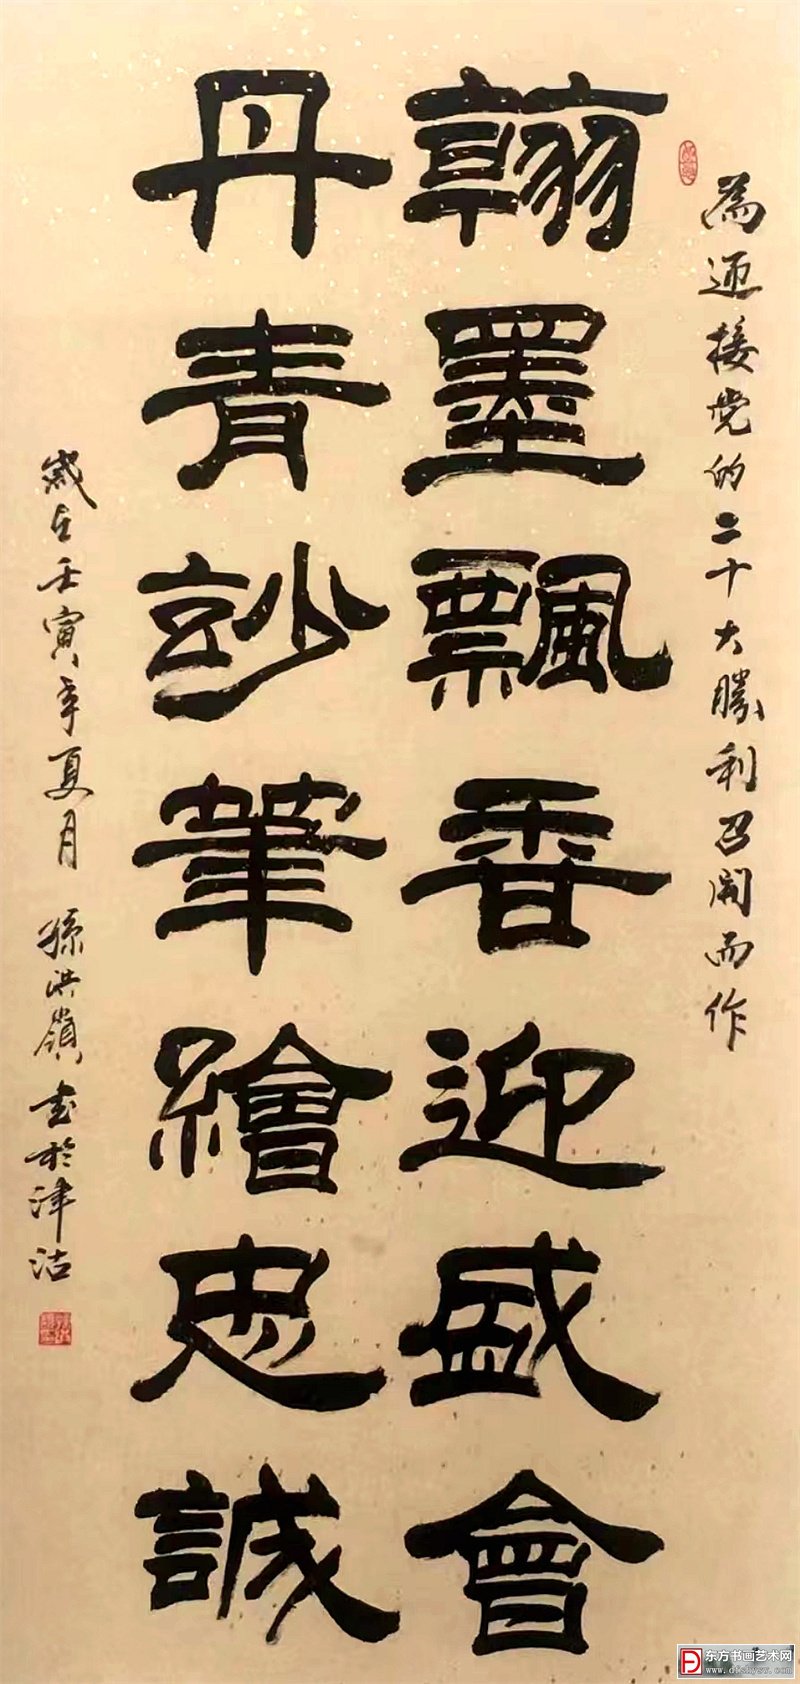 為迎接党的二十大勝利召開而作
翰墨飄香迎盛會
丹青妙筆繪忠誠
歲在壬寅年夏月 孫洪嶺書於津沽
东方书画艺术网